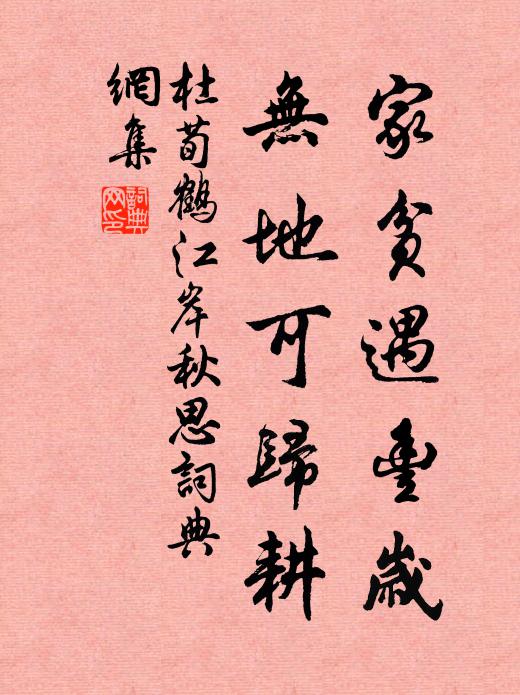 家貧遇豊歲
無地可歸耕
杜荀鶴江岸秋思詞典
網集
詞典网印